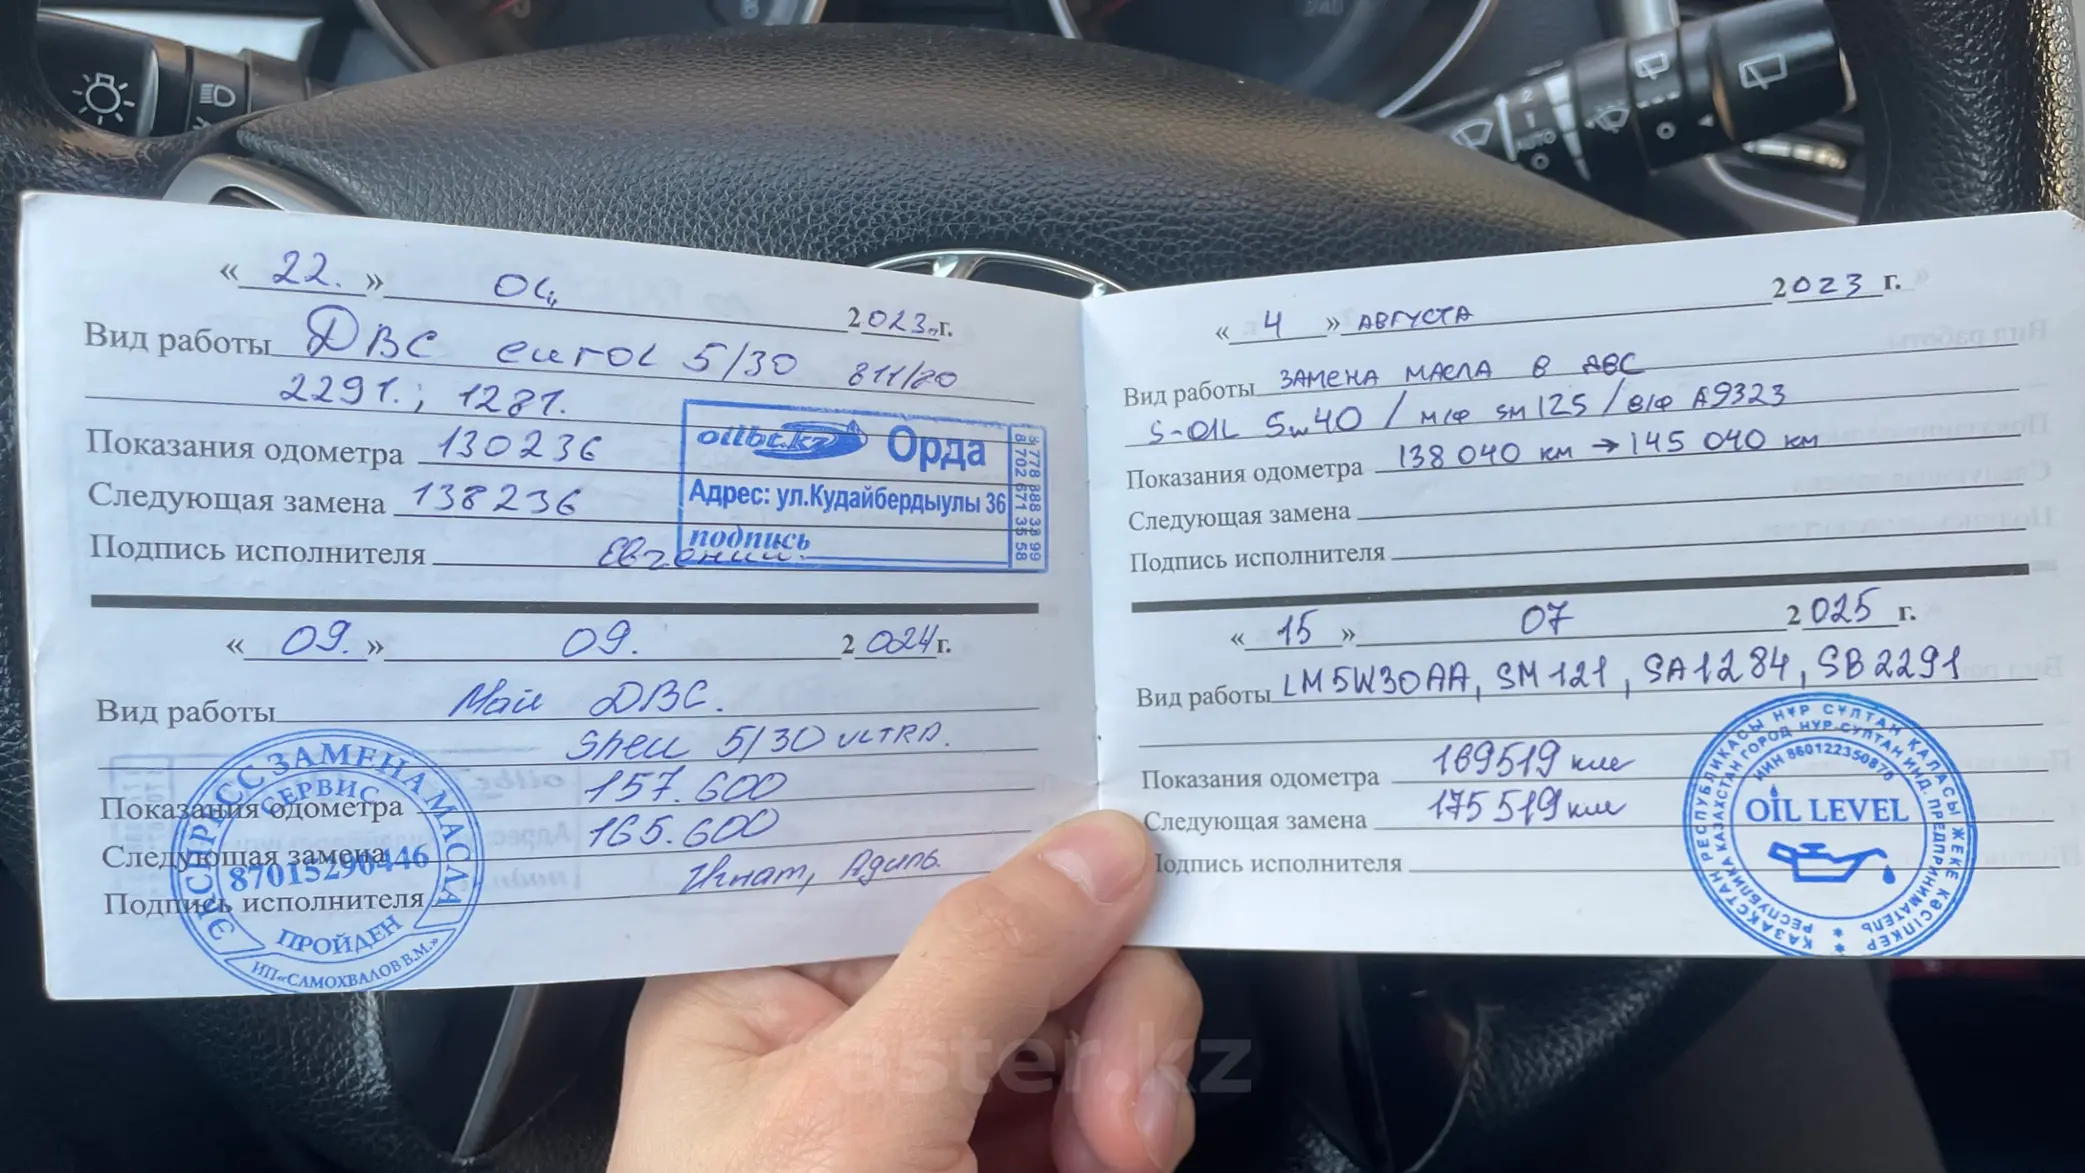 « 22. » 04, 2023.г.
Вид работы ДВС eurol 5/30 811/80
2291.; 1281.
Показания одометра 130236
Следующая замена 138236
Подпись исполнителя Евгений.
oilbt.kz Орда
Адрес: ул.Кудайбердыулы 36
подпись
8 778 888 33 99
8 702 671 35 58
« 09. » 09. 2024г.
Вид работы Май ДВС.
Shell 5/30 ULTRA.
Показания одометра 157.600
Следующая замена 165.600
Подпись исполнителя Игнат, Адиль.
ЭКСПРЕСС ЗАМЕНА МАСЛА
СЕРВИС
87015290446
ПРОЙДЕН
ИП«САМОХВАЛОВ В.М.»
« 4 » АВГУСТА 2023 г.
Вид работы ЗАМЕНА МАСЛА В ДВС
S-OIL 5w40 / м/ф SM125 / в/ф A9323
Показания одометра 138 040 км → 145 040 км
Следующая замена
Подпись исполнителя
« 15 » 07 2025 г.
Вид работы LM5W30AA, SM121, SA1284, SB2291
Показания одометра 169519 км
Следующая замена 175519 км
Подпись исполнителя
ҚАЗАҚСТАН РЕСПУБЛИКАСЫ НҰР СҰЛТАН ҚАЛАСЫ ЖЕКЕ КӘСІПКЕР
РЕСПУБЛИКА КАЗАХСТАН ГОРОД НУР-СУЛТАН ИНД. ПРЕДПРИНИМАТЕЛЬ
ИИН 860122350876
OIL LEVEL
AUTO
aster.kz